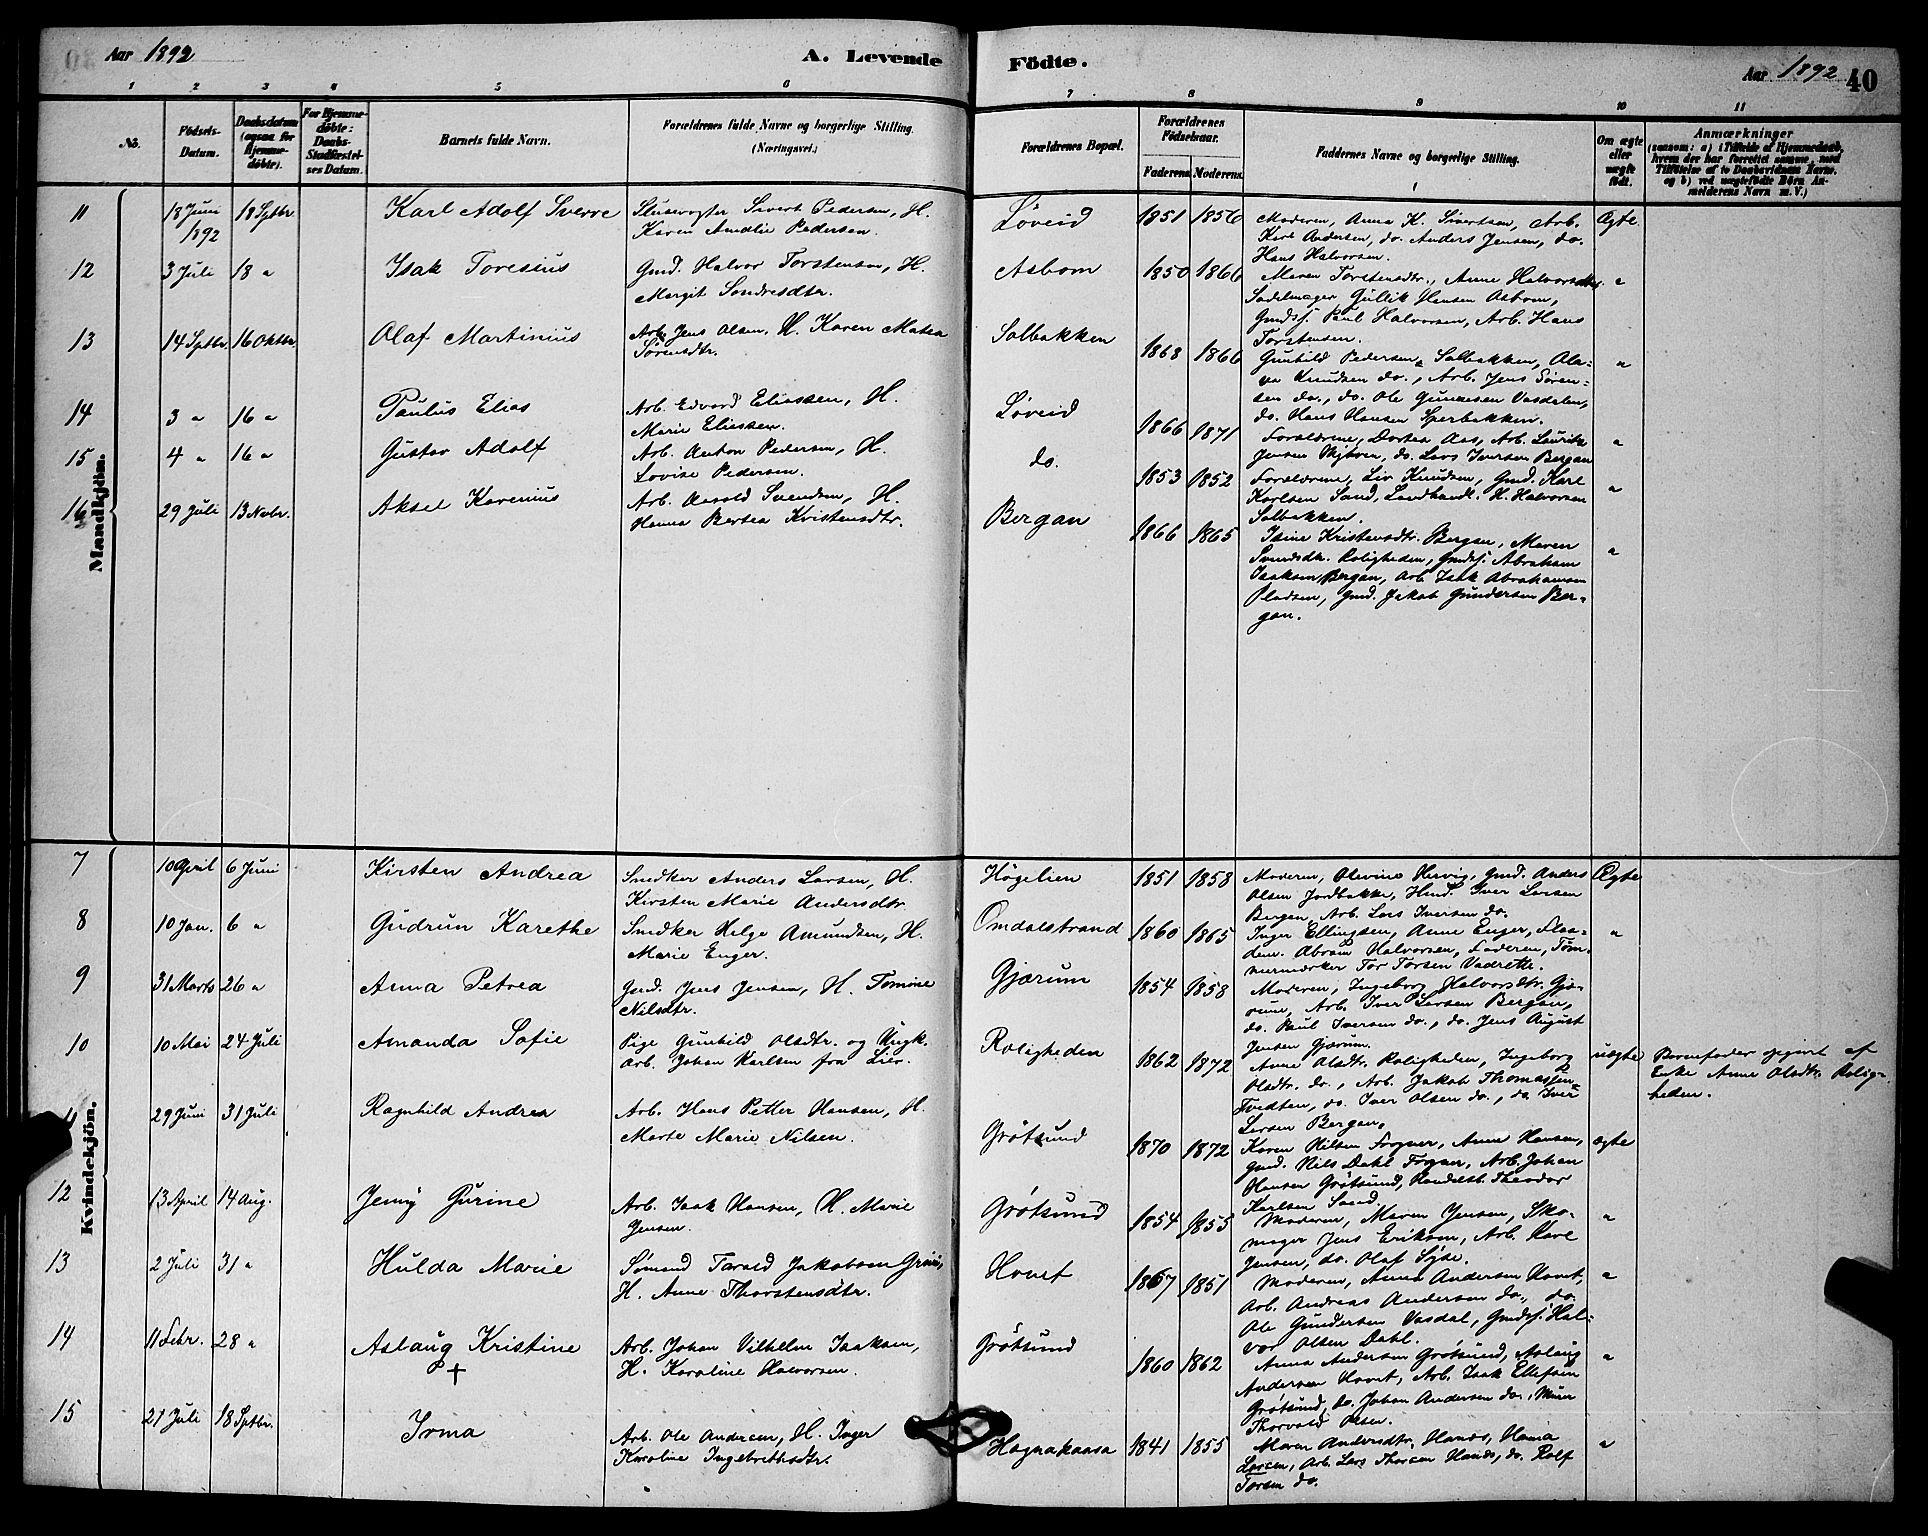 Aar 1892
A. Levende
Födte.
Aar 1892
40
1 2 3 4 5 6 7 8 9 10 11
No.
Födsels-
Datum.
Daabsdatum
(ogsaa for
Hjemme-
döbte).
For Hjemme-
döbte:
Daabs-
Stadfæstel-
ses Datum.
Barnets fulde Navn.
Forældrenes fulde Navne og borgerlige Stilling.
(Næringsvei.)
Forældrenes Bopæl.
Forældrenes
Födselsaar.
Faderens. Moderens.
Faddernes Navne og borgerlige Stilling.
Om ægte
eller
uægte
födt.
Anmærkninger
(saasom: a) i Tilfælde af Hjemmedaab,
hvem der har forrettet samme, med
Tilföielse af to Daabsvidners Navne,
og b) ved uægtefödte Börn An-
melderens Navn m. V.)
Mandkjön.
11
18 Juni
1892
18 Sptbr.
Karl Adolf Sverre
Slusevogter Sivert Pedersen, H.
Karen Amalie Pedersen.
Løveid
1851 1856
Moderen, Anna K. Sivertsen, Arb.
Karl Andersen, do. Anders Jensen, do.
Hans Halvorsen.
Ægte
12
3 Juli
18 "
Isak Toresius
Gmd. Halvor Torstensen, H.
Margit Sondresdtr.
Asbom
1850 1866
Maren Torstensdtr., Anne Halvorsdtr.
Sadelmager Gullik Hansen Asbom,
Gmdsf. Paul Halvorsen, Arb. Hans
Torstensen.
"
13
14 Sptbr.
16 Oktbr.
Olaf Martinius
Arb. Jens Olsen, H. Karen Matea
Sørensdtr.
Solbakken
1868 1866
Gunhild Pedersen Solbakken, Ola-
va Knudsen do., Arb. Jens Søren-
sen do., do. Ole Gundersen Vasdalen,
do. Hans Hansen Sperbakken.
"
14
3 "
16 "
Paulus Elias
Arb. Edvard Eliassen, H.
Marie Eliassen.
Løveid
1866 1871
Forældrene, Dortea Aas, Arb. Lauritz
Jensen, do. Lars Iversen Bergan
"
15
4 "
16 "
Gustav Adolf
Arb. Anton Pedersen, H.
Lovise Pedersen.
do.
1853 1852
Forældrene, Liv Knudsen, Gmd. Karl
Karlsen Sand, Landhandl. H. Halvorsen
Solbakken.
"
16
29 Juli
13 Novbr.
Aksel Karenius
Arb. Svendsen, H.
Hanna Bertea Kristensdtr.
Bergan
1866 1865
Kristensdtr. Bergan, Maren
Svendsdtr. Roligheden, Gmdsf. Abraham
Isaksen Bergan, Arb. Isak Abrahamsen
Pladsen, Gmd. Jakob Gundersen Ber-
gan.
"
Kvindekjön.
7
10 April
6 Juni
Kirsten Andrea
Snedker Anders Larsen, H.
Kirsten Marie Andersdtr.
Høgelien
1851 1858
Moderen, Olevine Hervig, Gmd. Anders
Olsen Jordbakke, Iver Larsen
Bergan, Arb. Lars Iversen do.
Ægte
8
10 Jan.
6 "
Gudrun Karethe
Snedker Helge Amundsen, H.
Marie Enger.
Omdalstrand
1860 1865
Inger Ellingsen, Anne Enger,
Abram Halvorsen, Faderen, Tøm-
mermærker Tor Torsen Vadrette.
"
9
31 Marts
26 "
Anna Petrea
Gmd. Jens Jensen, H. Tomine
Nilsdtr.
Gjærum
1854 1858
Moderen, Ingeborg Halvorsdtr. Gjæ-
rum, Arb. Iver Larsen Bergan,
do. Paul Iversen do., do. Jens August
Jensen Gjærum.
10
10 Mai
24 Juli
Amanda Sofie
Pige Gunhild Olsdtr. og Ungk.
Arb. Johan Karlsen fra Lier.
Roligheden
1862 1872
Anne Olsdtr. Roligheden, Ingeborg
Olsdtr. do., Arb. Jakob Thomassen
Tvedten, do. Iver Olsen do., do. Iver
Larsen Bergan.
uægte
Barnefader opgivet af
Enke Anne Olsdtr. Rolig-
heden.
29 Juni
31 Juli
Ragnhild Andrea
Arb. Hans Petter Hansen, H.
Marte Marie Nilsen.
Grøtsund
1870 1872
Karen Nilsen Fogner, Anne Hansen,
Gmd. Nils Dahl Fogner, Arb. Johan
Hansen Grøtsund, Handelsb. Theodor
Karlsen Sand
ægte
12
13 April
14 Aug.
Jenny Gurine
Arb. Isak Hansen, H. Marie
Jensen.
Grøtsund
1854 1855
Moderen, Maren Jensen, Sko-
mager Jens Eriksen, Arb. Karl
Jensen, do. Olaf
"
13
2 Juli
31 "
Hulda Marie
Sømand Tarald Jakobsen
H. Anne Thorstensdtr.
Hovet
1867 1851
Moderen, Anna Andersen Hovet,
Arb. Andreas Andersen do., do.
Ole Gundersen Vasdal, Gmdsf. Hal-
vor Olsen Dahl.
"
14
11 Febr.
28 "
Aslaug Kristine
+
Arb. Johan Vilhelm Isaksen,
H. Karoline Halvorsen.
Grøtsund
1860 1862
Anna Andersen Grøtsund, Aslaug
Andersen Hovet, Arb. Isak Ellefsen
Grøtsund, do. Johan Andersen do., Murer
Thorvald Olsen.
"
15
21 Juli
18 Sptbr.
Irma
Arb. Ole Andersen, H. Inger
Karoline Ingebretsdtr.
Hognakaasa
1841 1855
Maren Andersdtr. Hanés, Hanna
Larsen, Arb. Lars Thorsen Hanés, do. Rolf
Torsen do.
"